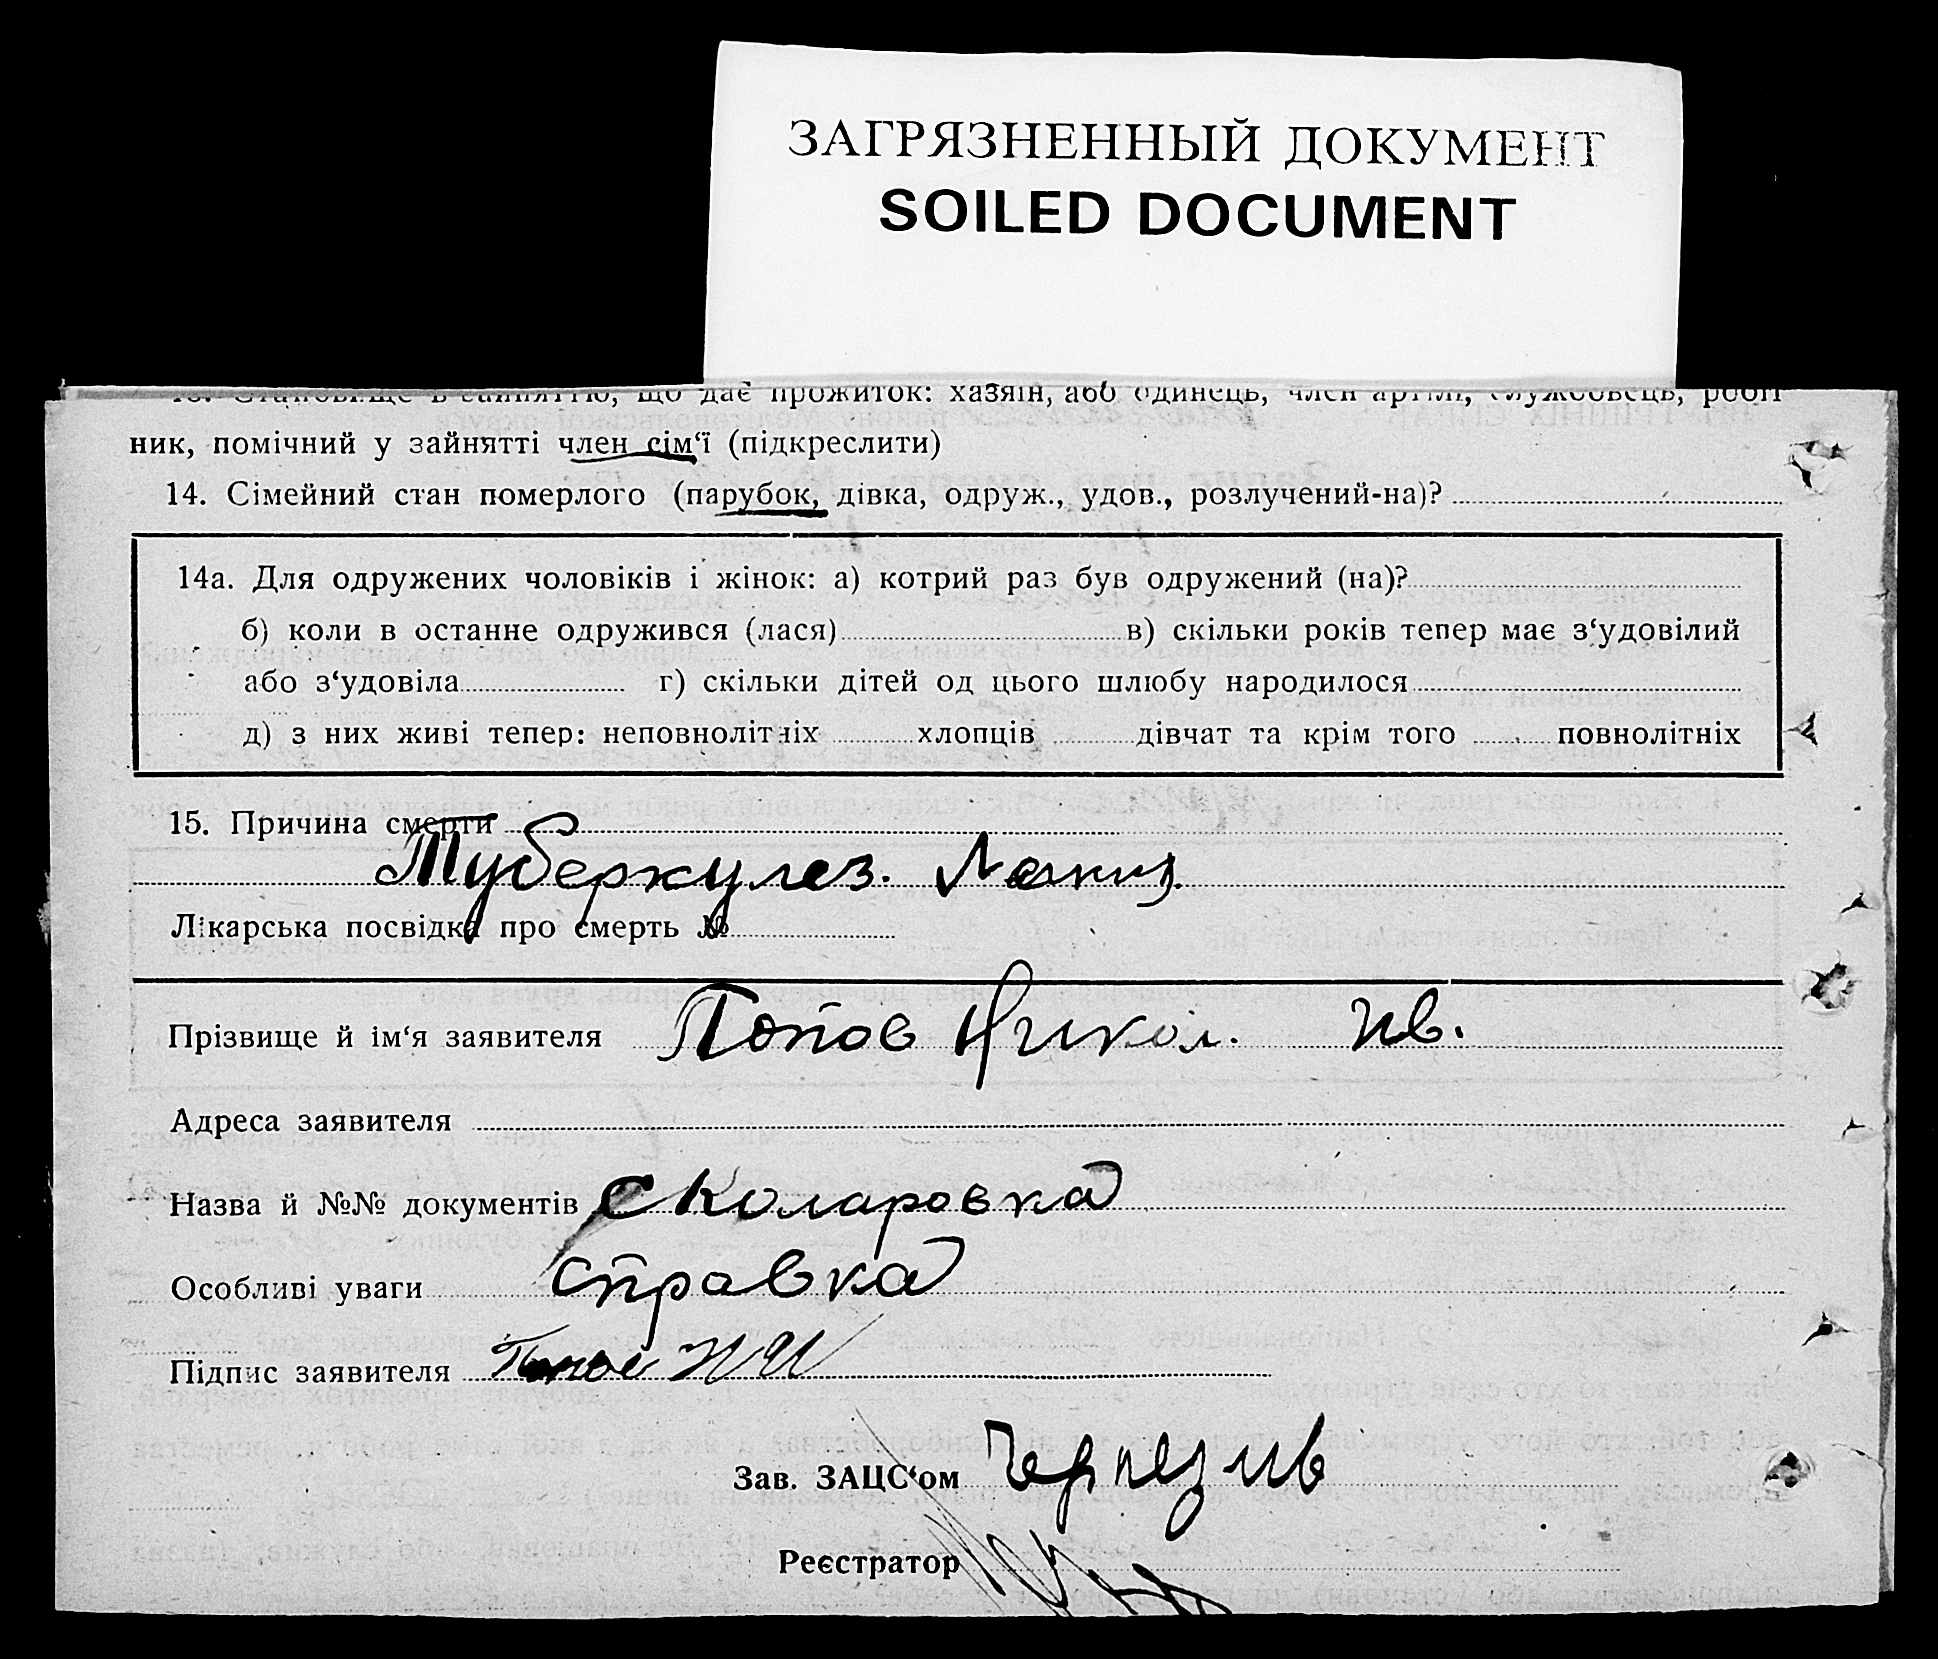 ЗАГРЯЗНЕННЫЙ ДОКУМЕНТ
SOILED DOCUMENT
13. Становище в зайняттю, що дає прожиток: хазяїн, або одинець, член артілі, службовець, робіт
ник, помічний у зайнятті член сім‘ї (підкреслити)
14. Сімейний стан померлого (парубок, дівка, одруж., удов., розлучений-на)?
14а. Для одружених чоловіків і жінок: а) котрий раз був одружений (на)?
б) коли в останне одружився (лася) в) скільки років тепер має з‘удовілий
або з‘удовіла г) скільки дітей од цього шлюбу народилося
д) з них живі тепер: неповнолітніх хлопців дівчат та крім того повнолітніх
15. Причина смерти
Туберкулез.
Лікарська посвідка про смерть №
Прізвище й ім‘я заявителя Попов Никол. Ив.
Адреса заявителя
Назва й №№ документів с Коларовка
Особливі уваги справка
Підпис заявителя Попов НИ
Зав. ЗАЦС‘ом
Реєстратор